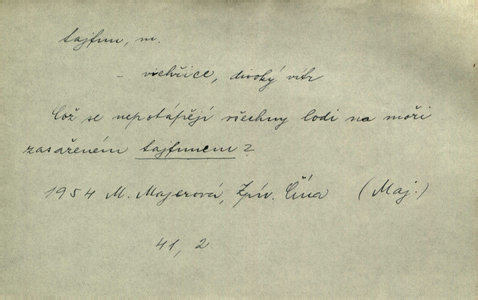 tajfun, m.
- vichřice, divoký vítr
Což se nepotápějí všechny lodi na moři
zasaženém tajfunem?
1954 M. Majerová, Zpív. Čína (Maj.)
41, 2